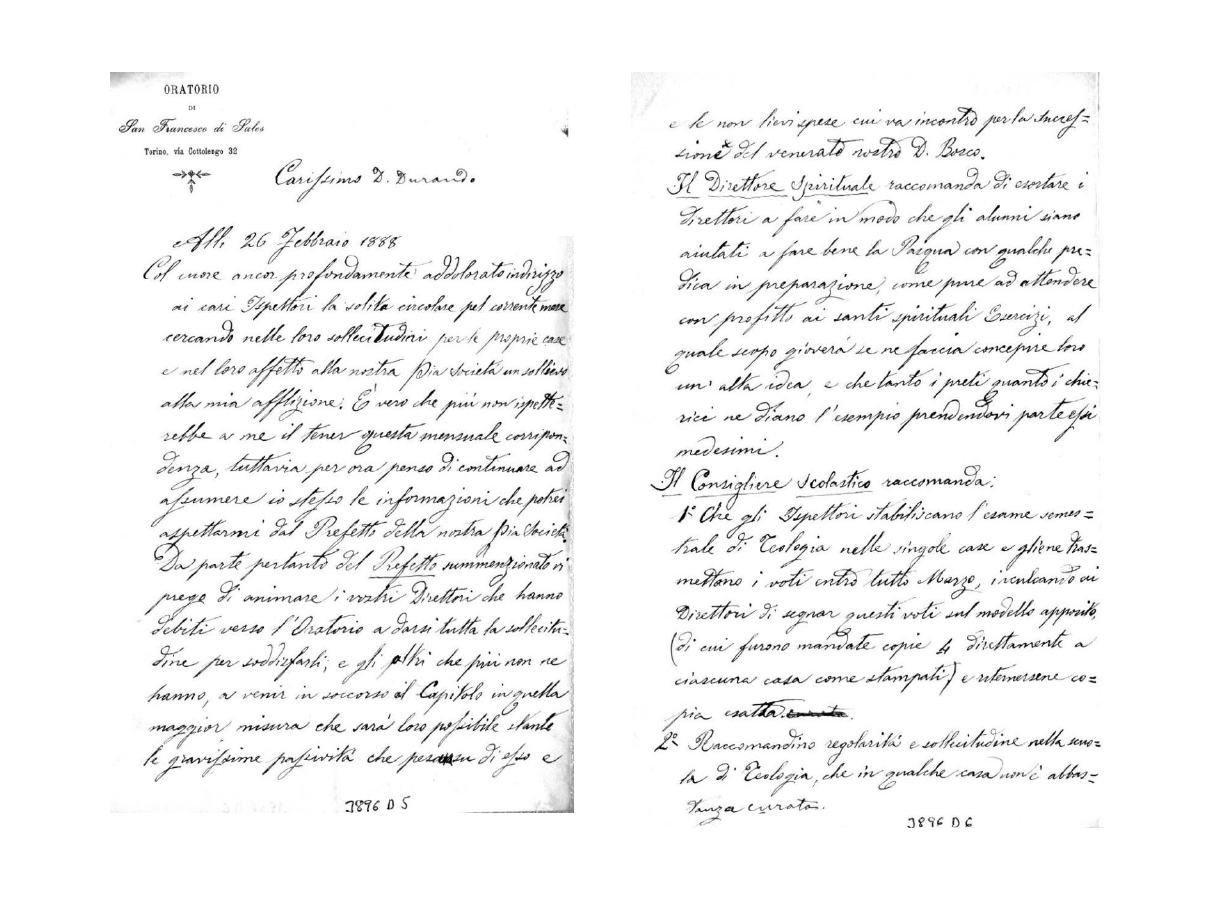 ORATORIO
DI
San Francesco di Sales
Torino, via Cottolengo 32
Carissimo D. Durando.
Alli 26 Febbraio 1888
Col cuore ancor profondamente addolorato indirizzo
ai cari Ispettori la solita circolare pel corrente mese
cercando nelle loro sollecitudini per le proprie case
e nel loro affetto alla nostra Pia Società un sollievo
alla mia afflizione. È vero che più non ispette=
rebbe a me il tener questa mensuale corrispon=
denza, tuttavia per ora penso di continuare ad
assumere io stesso le informazioni che potrei
aspettarmi dal Prefetto della nostra Pia Società
Da parte pertanto del Prefetto summenzionato vi
prego di animare i vostri Direttori che hanno
debiti verso l'Oratorio a darsi tutta la sollecitu=
dine per soddisfarli; e gli altri che più non ne
hanno, a venir in soccorso al Capitolo in quella
maggior misura che sarà loro possibile stante
le gravissime passività che pesano su di esso e
J896 D 5
e le non lievi spese cui va incontro per la succes=
sione del venerato nostro D. Bosco.
Il Direttore Spirituale raccomanda di esortare i
Direttori a fare in modo che gli alunni siano
aiutati a fare bene la Pasqua con qualche pre=
dica in preparazione, come pure ad attendere
con profitto ai santi spirituali Esercizi, al
quale scopo gioverà se ne faccia concepire loro
un' alta idea, e che tanto i preti quanto i chie=
rici ne diano l'esempio prendendovi parte essi
medesimi.
Il Consigliere Scolastico raccomanda:
1º Che gli Ispettori stabiliscano l'esame semes=
trale di Teologia nelle singole case e gliene tras=
mettano i voti entro tutto Marzo, inculcando ai
Direttori di segnar questi voti sul modello apposito,
(di cui furono mandate copie 4 direttamente a
ciascuna casa come stampati) e ritenersene co=
pia esatta.
2º Raccomandino regolarità e sollecitudine nella scuo=
la di Teologia, che in qualche casa non è abbas=
tanza curata.
J896 D 6